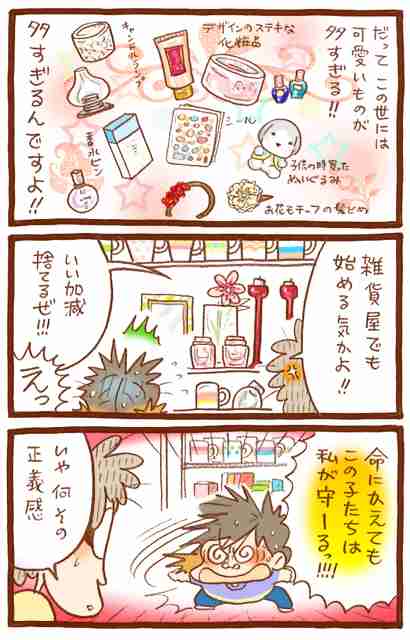 だって この世には
可愛いものが
多すぎる!!
デザインのステキな
化粧品
キャンドルランプ
シール
香水ビン
子供の時買った
ぬいぐるみ
お花モチーフの髪どめ
多すぎるんですよ!!
雑貨屋でも
始める気かよ!!
いい加減
捨てるぜ!!!
えっ
命にかえても
この子たちは
私が守ーるっ!!!!
いや 何その
正義感